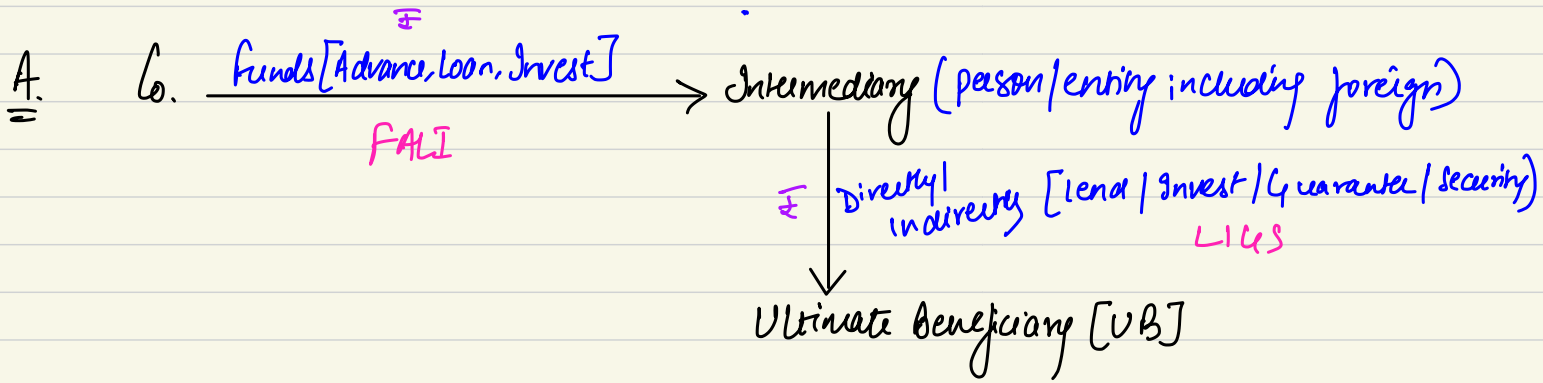 ₹
A. Co. Funds [Advance, Loan, Invest] Intermediary (person/entity including foreign)
FALI
₹ Directly/ indirectly [lend/Invest/Guarantee/security)
LIGS
Ultimate Beneficiary [UB]